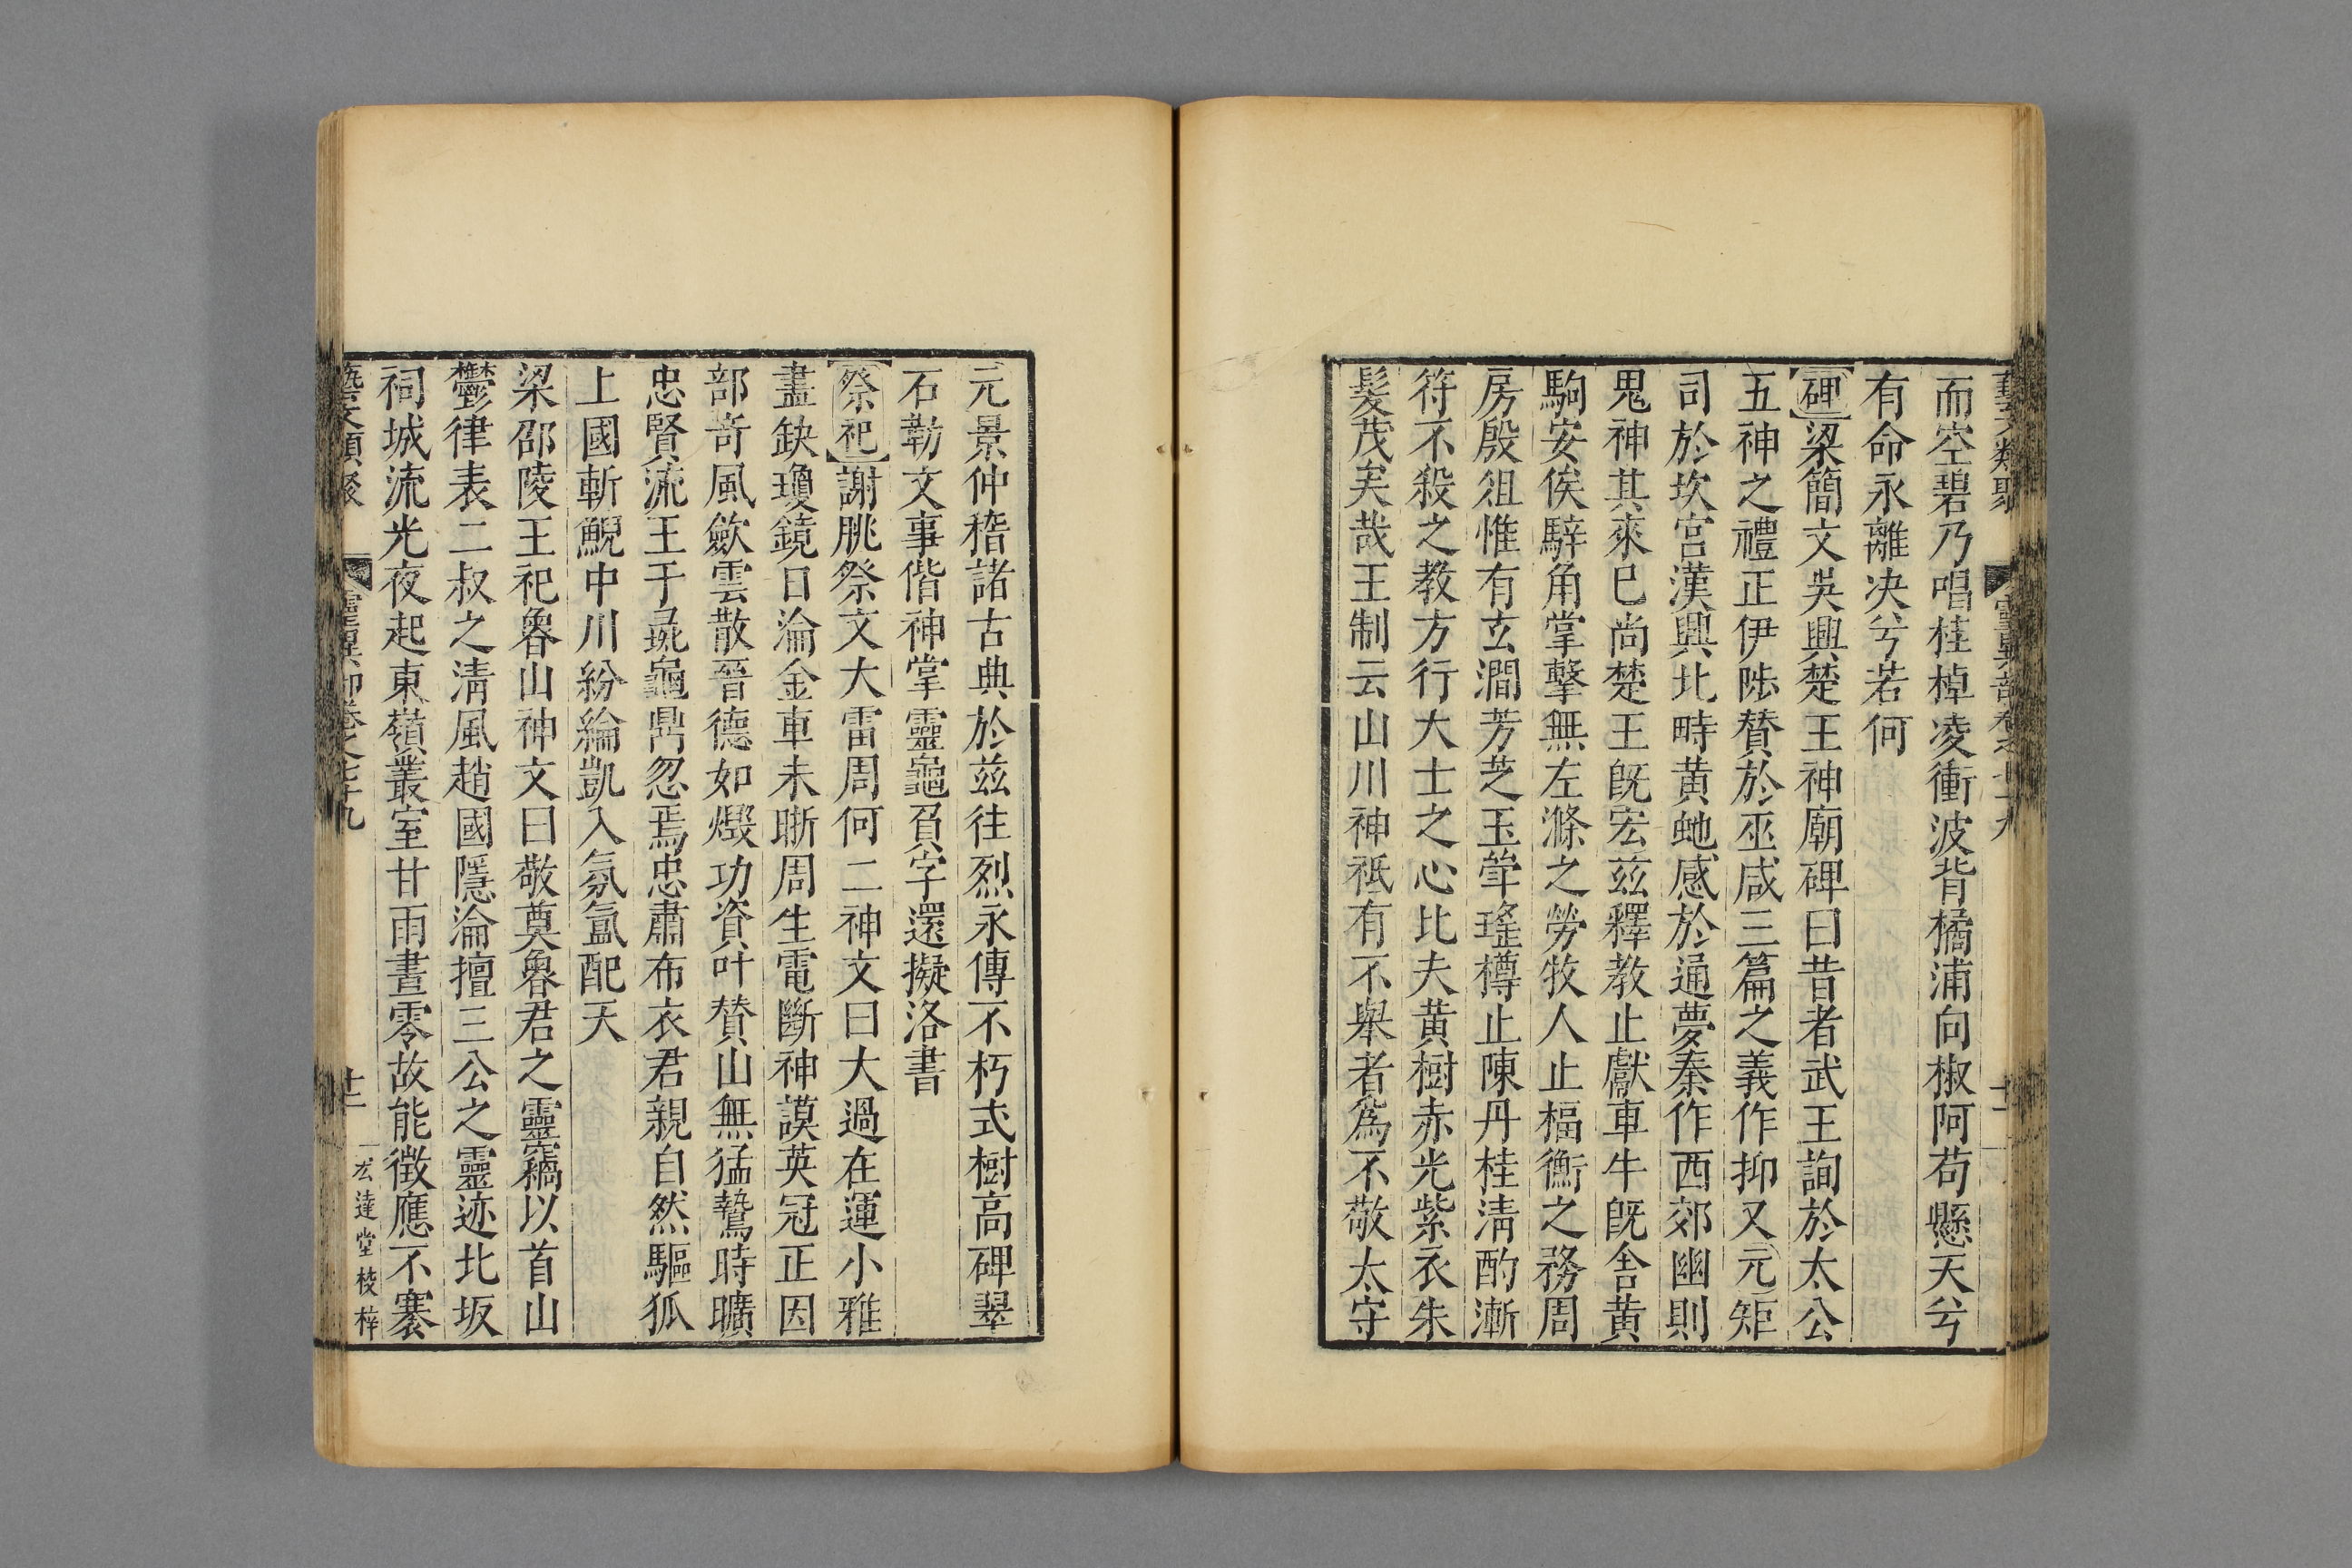 藝文類聚 靈異部卷之七十九 十一
而空碧乃唱桂棹凌衝波背橘浦向椒阿苟懸天兮
有命永離决兮若何
【碑】梁簡文吳興楚王神廟碑曰昔者武王詢於太公
五神之禮正伊陟賛於巫咸三篇之義作抑又元矩
司於坎宫漢興北畤黄虵感於通夢秦作西郊幽則
鬼神其來巳尚楚王旣宏兹釋教止獻車牛旣舍黄
駒安俟騂角掌擊無左滌之勞牧人止楅衡之務周
房殷俎惟有玄澗芳芝玉葷瑤樽止陳丹桂淸酌漸
符不殺之教方行大士之心比夫黄樹赤光紫衣朱
髮茂矣哉王制云山川神祇有不舉者爲不敬太守
元景仲稽諸古典於兹往烈永傳不朽式樹高碑翠
石勒文事偕神掌靈龜負字還擬洛書
【祭祀】謝朓祭文大雷周何二神文曰大過在運小雅
盡缺瓊鏡日淪金車未晰周生電斷神謨英冠正因
部竒風歛雲散晉德如燬功資叶賛山無猛鷙時曠
忠賢流王于彘龜鼎忽焉忠肅布衣君親自然驅狐
上國斬鯢中川紛綸凱入氛氲配天
梁邵陵王祀魯山神文曰敬奠魯君之靈竊以首山
鬱律表二叔之淸風趙國隱淪擅三公之靈迹北坂
祠城流光夜起東嶺叢室甘雨晝零故能徵應不褰
藝文類聚 靈異部卷之七十九 十二 宏達堂校梓